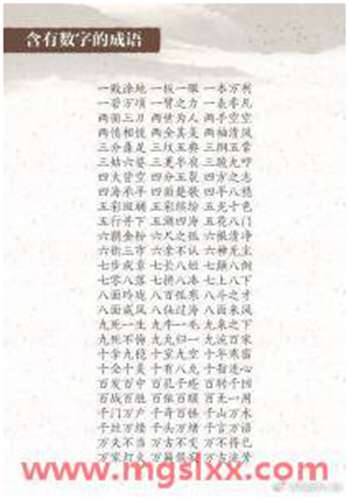 含有数字的成语
一败涂地 一板一眼 一本万利
一碧万顷 一臂之力 一表非凡
两面三刀 两世为人 两手空空
两情相悦 两全其美 两袖清风
三分鼎足 三坟五典 三纲五常
三姑六婆 三更半夜 三跪九叩
四大皆空 四分五裂 四方之志
四海承平 四面楚歌 四平八稳
五彩斑斓 五彩缤纷 五光十色
五行并下 五湖四海 五花八门
六朝金粉 六尺之孤 六根清净
六街三市 六亲不认 六神无主
七步成章 七长八短 七颠八倒
七零八落 七拼八凑 七上八下
八面玲珑 八百孤寒 八斗之才
八面威风 八仙过海 八面来风
九死一生 九牛一毛 九泉之下
九死不悔 九九归一 九流百家
十拿九稳 十室九空 十年寒窗
十全十美 十有八九 十指连心
百发百中 百孔千疮 百转千回
百战百胜 百依百顺 百无一用
千门万户 千奇百怪 千山万水
千丝万缕 千头万绪 千言万语
万夫不当 万古不变 万不得已
万家灯火 万箭 万古流芳
www.mgslxx.com